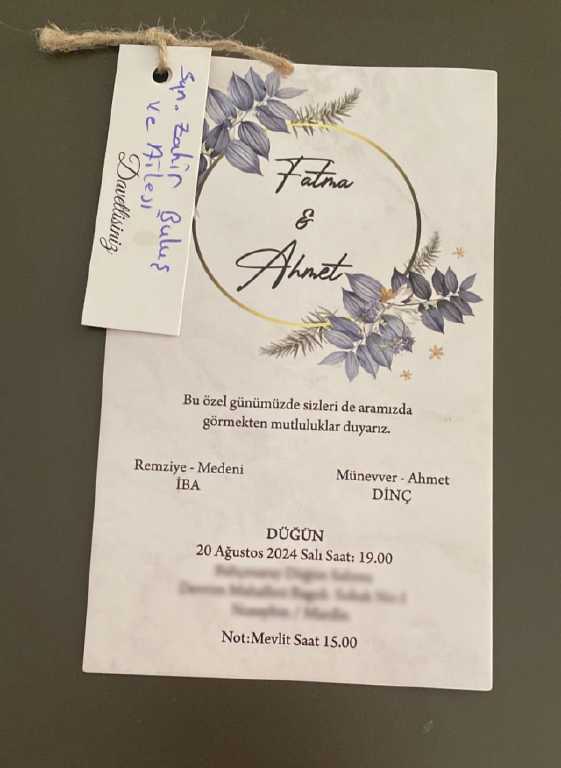 Syn. Zahir Buluş
ve Ailesi
Davetlisiniz
Fatma
&
Ahmet
Bu özel günümüzde sizleri de aramızda
görmekten mutluluklar duyarız.
Remziye - Medeni
İBA
Münevver - Ahmet
DİNÇ
DÜĞÜN
20 Ağustos 2024 Salı Saat: 19.00
Not:Mevlit Saat 15.00